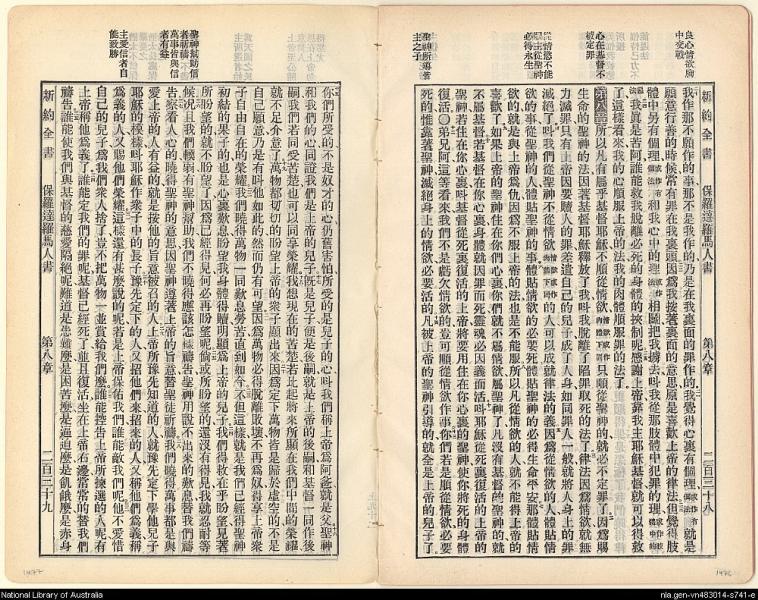 良心情慾胸
中交戰
心在基督不
被定罪
必得永生
聖神所導者
主之子
新約全書 保羅達羅馬人書 第八章 二百三十八
我作那不願作的事那不是我作的乃是在我裏面的罪作的我覺得心裏有個理
願意行善的時候常有罪在我裏頭因爲我按著裏面的意思原是喜歡上帝的律法但覺得肢
體中另有個理
和我心中的理
相關把我擄去叫我從那肢體中犯罪的理
我眞是苦阿誰能救我脫離必死的身體的挾制呢感謝上帝靠我主耶穌基督就可以得救
了這樣看來我的心順服上帝的法我的肉體順服罪的法了
第八章所以凡有屬乎基督耶穌不順從情慾
只順從聖神的就不定罪了因爲賜
生命的聖神的法因著基督耶穌釋放了我叫我脫離了陷罪取死的法了律法因爲情慾就無
力滅罪只有上帝因要贖人的罪差遣自己的兒子成了人身如同罪人一般就將人身上的罪
滅絕了叫我們從聖神不從情慾
的人可以成就律法的義因爲從情慾的人體貼情
欲的事從聖神的人體貼聖神的事體貼情慾的必要死體貼聖神的必得生命平安那體貼情
欲的就是與上帝爲仇因爲不服上帝的法也是不能服所以凡從情慾的人就不能得上帝的
喜歡了如果上帝的聖神住在你們心裏你們就不屬情慾屬聖神了凡沒有基督的聖神的就
不屬基督若基督在你心裏身體就因罪而死靈魂必因義而活叫耶穌從死裏復活的上帝的
聖神若住在你心裏叫基督從死裏復活的上帝將要用住在你心裏的聖神使你將死的身體
復活弟兄阿這等看來我們不是虧欠情慾的豈可順從情慾作事你們若是順從情慾必要
死的惟靠著聖神滅絕身上的情欲必要活的凡被上帝的聖神引導的就全是上帝的兒子了
聖神幫助信
者祈禱不已
萬事皆與信
者有益
主愛信者自
能致勝
你們所受的不是奴才的心仍舊害怕所受的是兒子的心叫我們稱上帝爲阿爸就是父聖神
和我們的心同證我們是上帝的兒子既是兒子便是後嗣就是上帝的後嗣和基督一同作後
嗣我們若同受苦楚也可以同享榮耀我想現在的苦楚若比起將來所顯在我們中間的榮耀
就不足介意了萬物都切切的盼望上帝的衆子顯出來因爲定下萬物皆是歸於虛空的不是
自己願意乃是有叫他如此的然而仍有可望因爲萬物必得脫離敗壞不再爲奴得享上帝衆
子自由自在的榮耀我們曉得萬物一同歎息勞苦直到如今不但這樣就是我們已經得聖神
初結的果子的也是心裏歎息盼望我身體得贖明顯爲上帝的兒子我們得救在乎盼望見著
所盼望的就不盼望了因爲已經得見何必再盼望呢倘或所盼望的還沒有得見我就忍耐等
候況且我們輭弱有聖神幫助我們不曉得應該怎樣禱告聖神用說不出來的歎息替我們禱
告察看人心的曉得聖神的意思因聖神遵著上帝的旨意替聖徒祈禱我們曉得萬事都是與
愛上帝的人有益的就是按他的旨意被召的人上帝所預先知道的人就預先定下學他兒子
耶穌的模樣叫耶穌在衆子中的長子預先定下的人又招他們來招來的人又稱他們爲義稱
爲義的人又賜他們榮耀這樣還有甚麼說的呢若是上帝保佑我們誰能敵我們呢他不愛惜
自己的兒子爲我們衆人捨了豈不把萬物一並賞給我們麼誰能控告上帝所揀選的人呢有
上帝稱他爲義了誰能定我們的罪呢基督已經死了並且復活坐在上帝右邊常常的替我們
禱告誰能使我們與基督的慈愛隔絕呢難道是患難麼是困苦麼是逼迫麼是飢餓麼是赤身
新約全書 保羅達羅馬人書 第八章 二百三十九
National Library of Australia
nla.gen-vn483014-s741-e